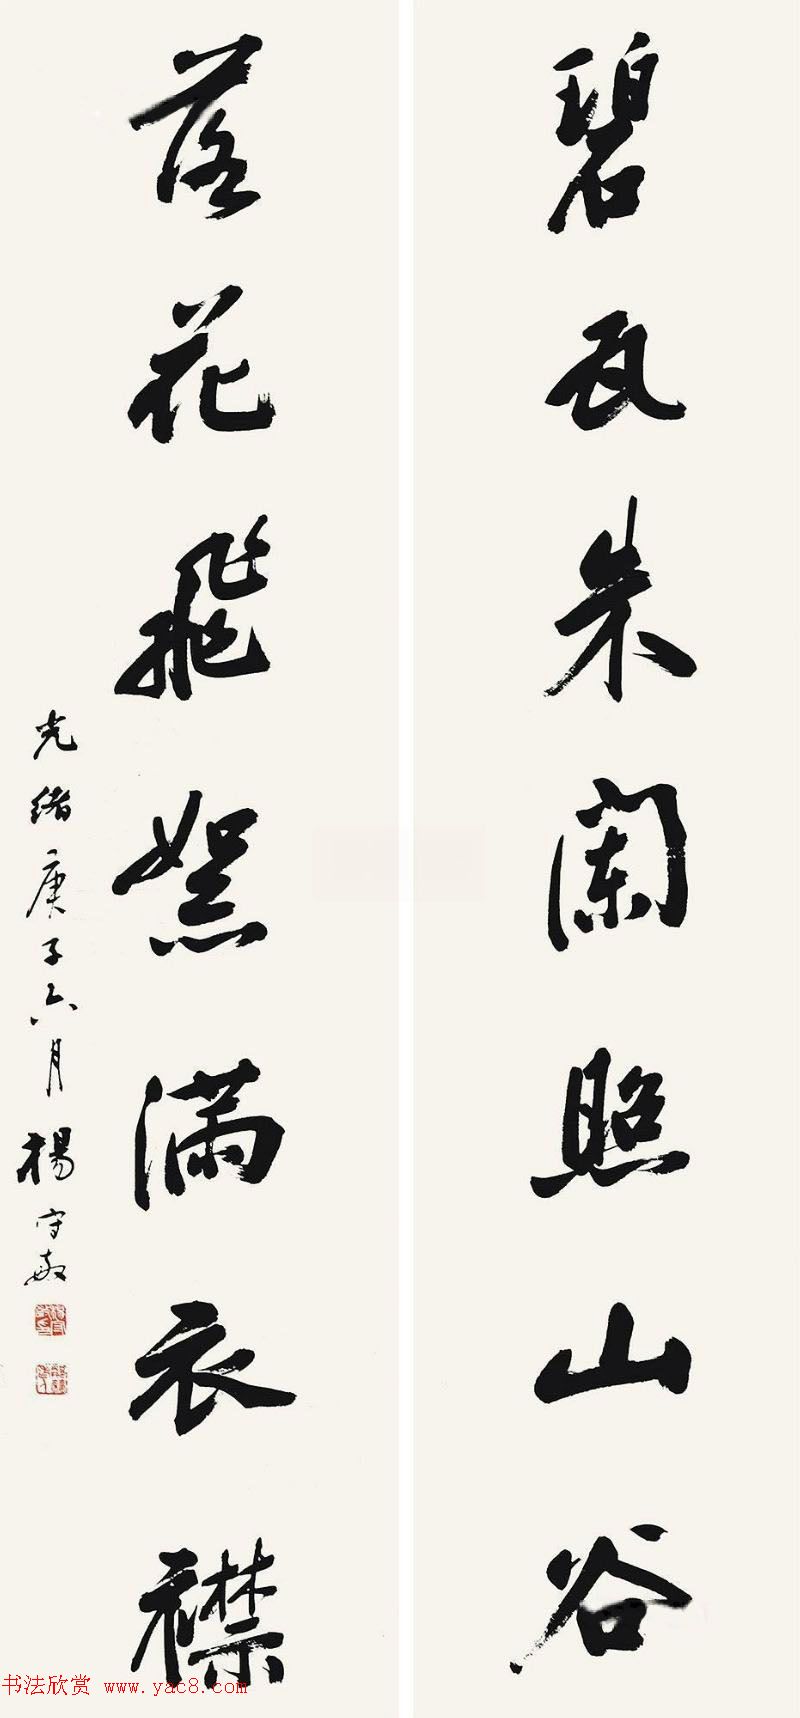 碧瓦朱阑照山谷
落花飛絮满衣襟
光緒庚子六月楊守敬
书法欣赏 www.yac8.com